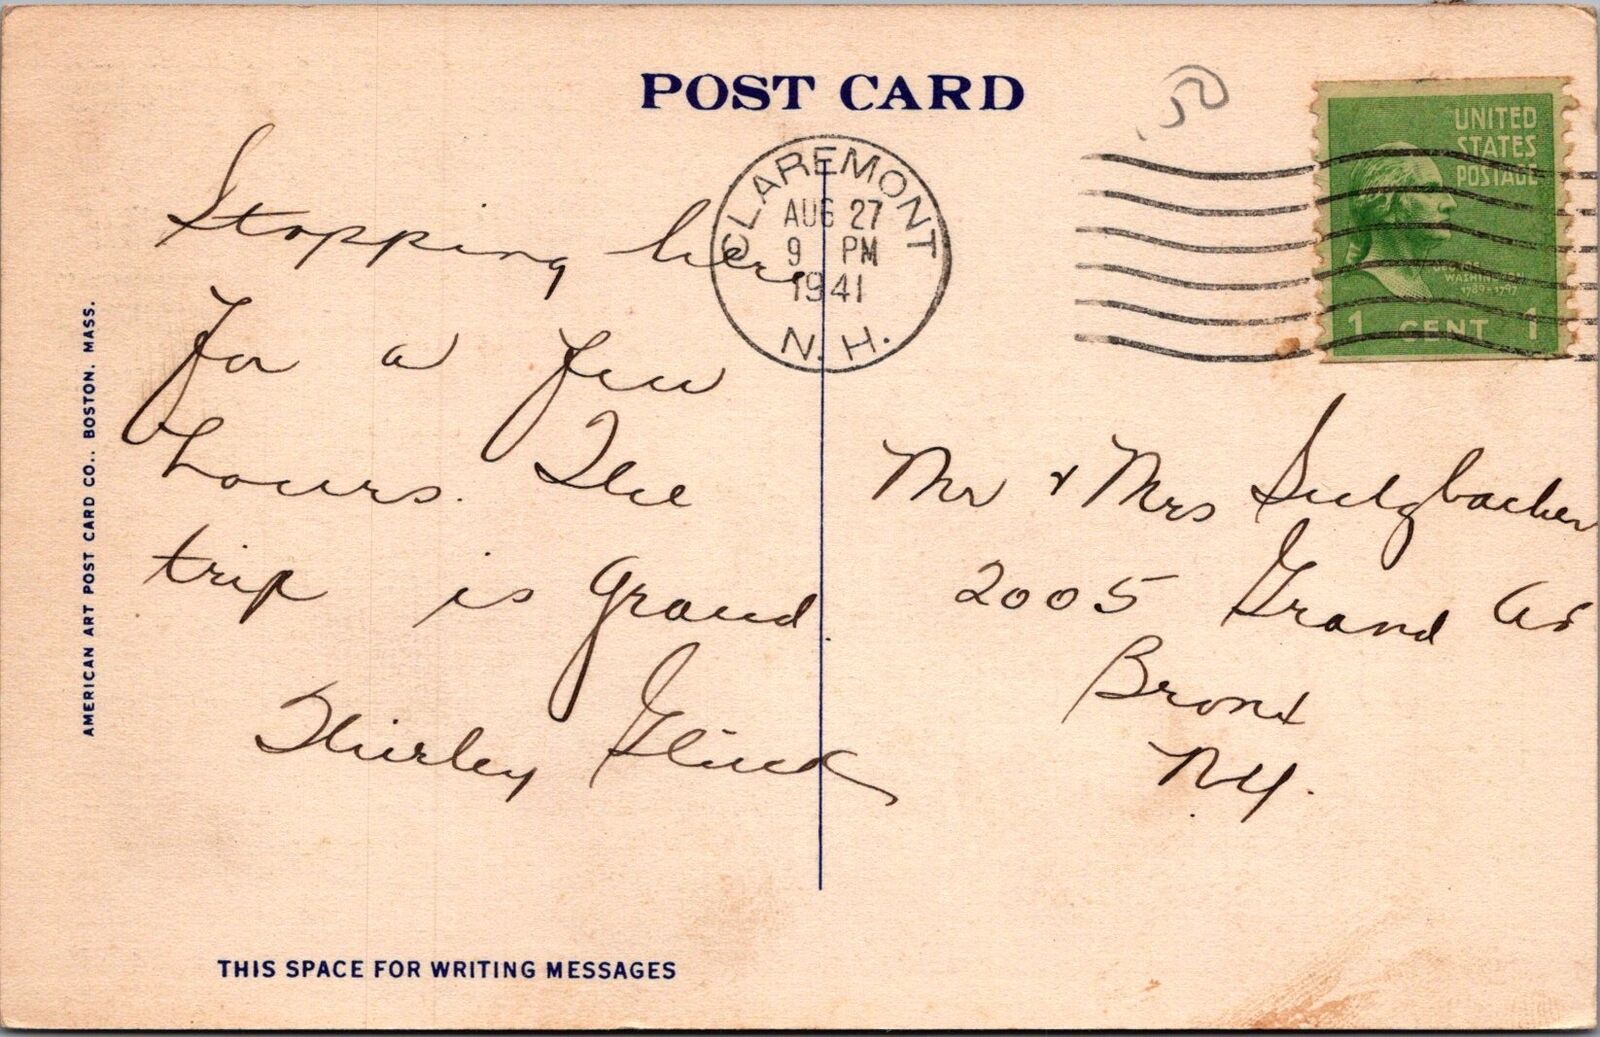 POST CARD
.50
CLAREMONT
AUG 27
9 PM
1941
N.H.
UNITED
STATES
POSTAGE
GEORGE
WASHINGTON
1789-1797
1 CENT 1
Stopping here
for a few
hours. The
trip is grand.
Shirley
Mr & Mrs Sulzbacher
2005 Grand Av
Bronx
NY.
AMERICAN ART POST CARD CO., BOSTON, MASS.
THIS SPACE FOR WRITING MESSAGES